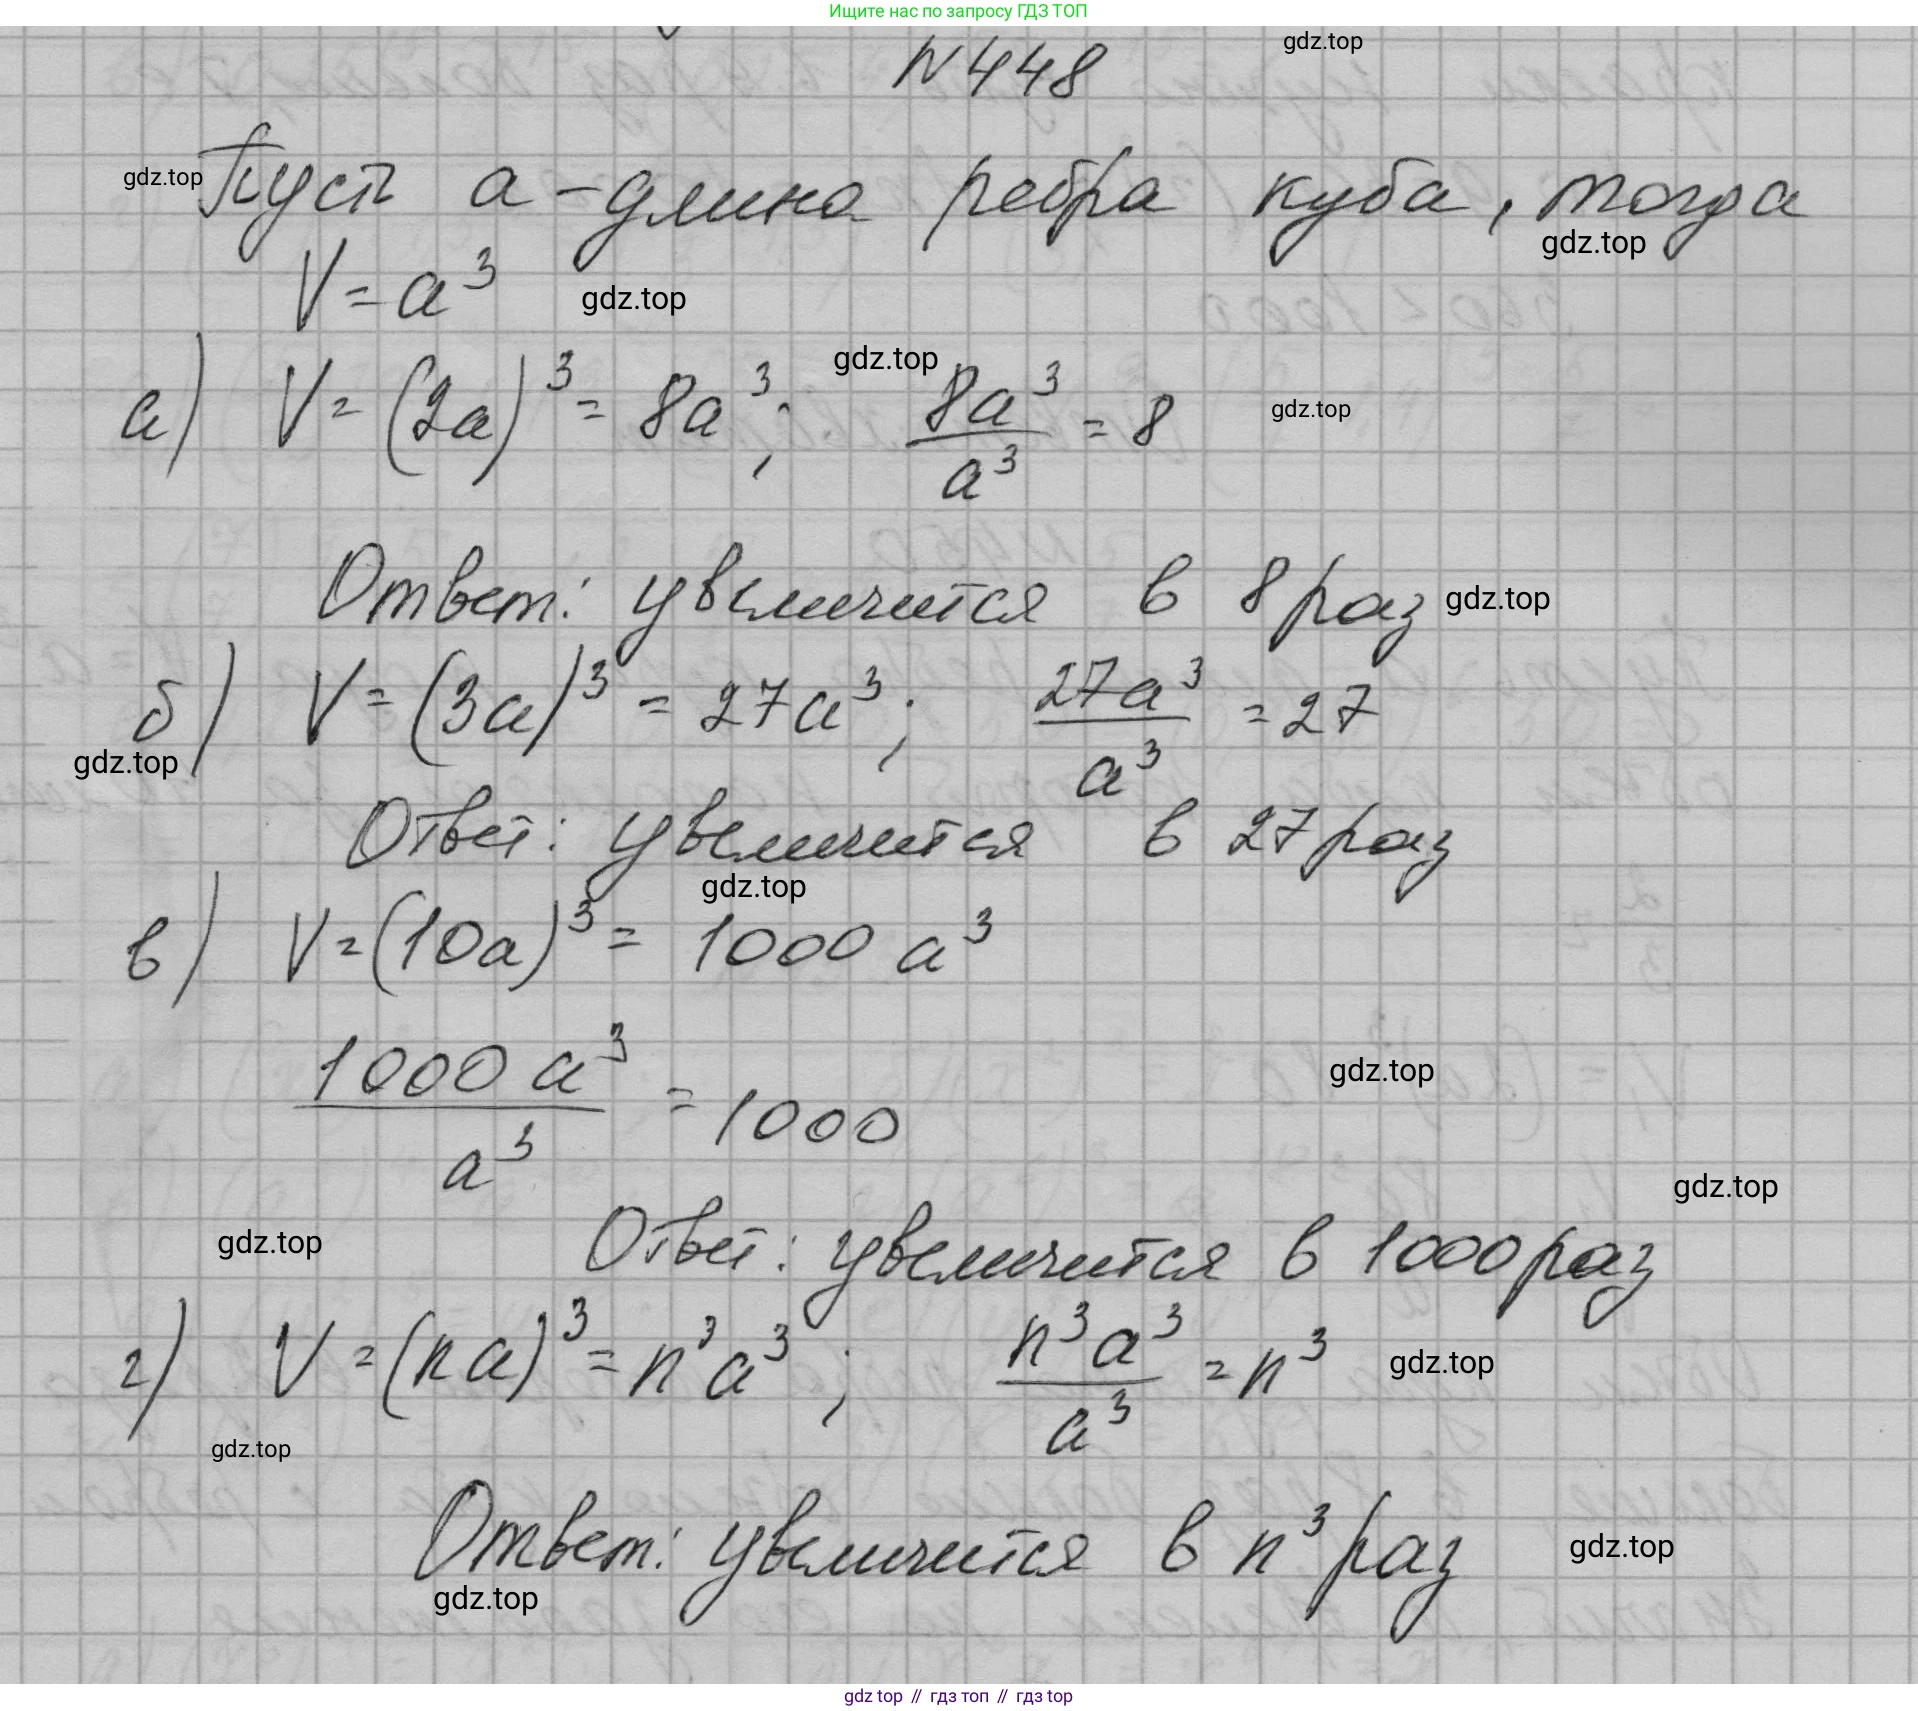 Ищите нас по запросу ГДЗ ТОП
N448
gdz.top
Пусть a - длина ребра куба, тогда
gdz.top
gdz.top
V = a³
gdz.top
а) V = (2a)³ = 8a³; 8a³/a³ = 8
gdz.top
gdz.top
Ответ: увеличится в 8 раз
gdz.top
б) V = (3a)³ = 27a³; 27a³/a³ = 27
gdz.top
Ответ: увеличится в 27 раз
gdz.top
в) V = (10a)³ = 1000 a³
1000 a³/a³ = 1000
gdz.top
gdz.top
gdz.top
Ответ: увеличится в 1000 раз
г) V = (na)³ = n³a³; n³a³/a³ = n³
gdz.top
gdz.top
Ответ: увеличится в n³ раз
gdz.top
gdz.top
gdz top // гдз топ // гдз top